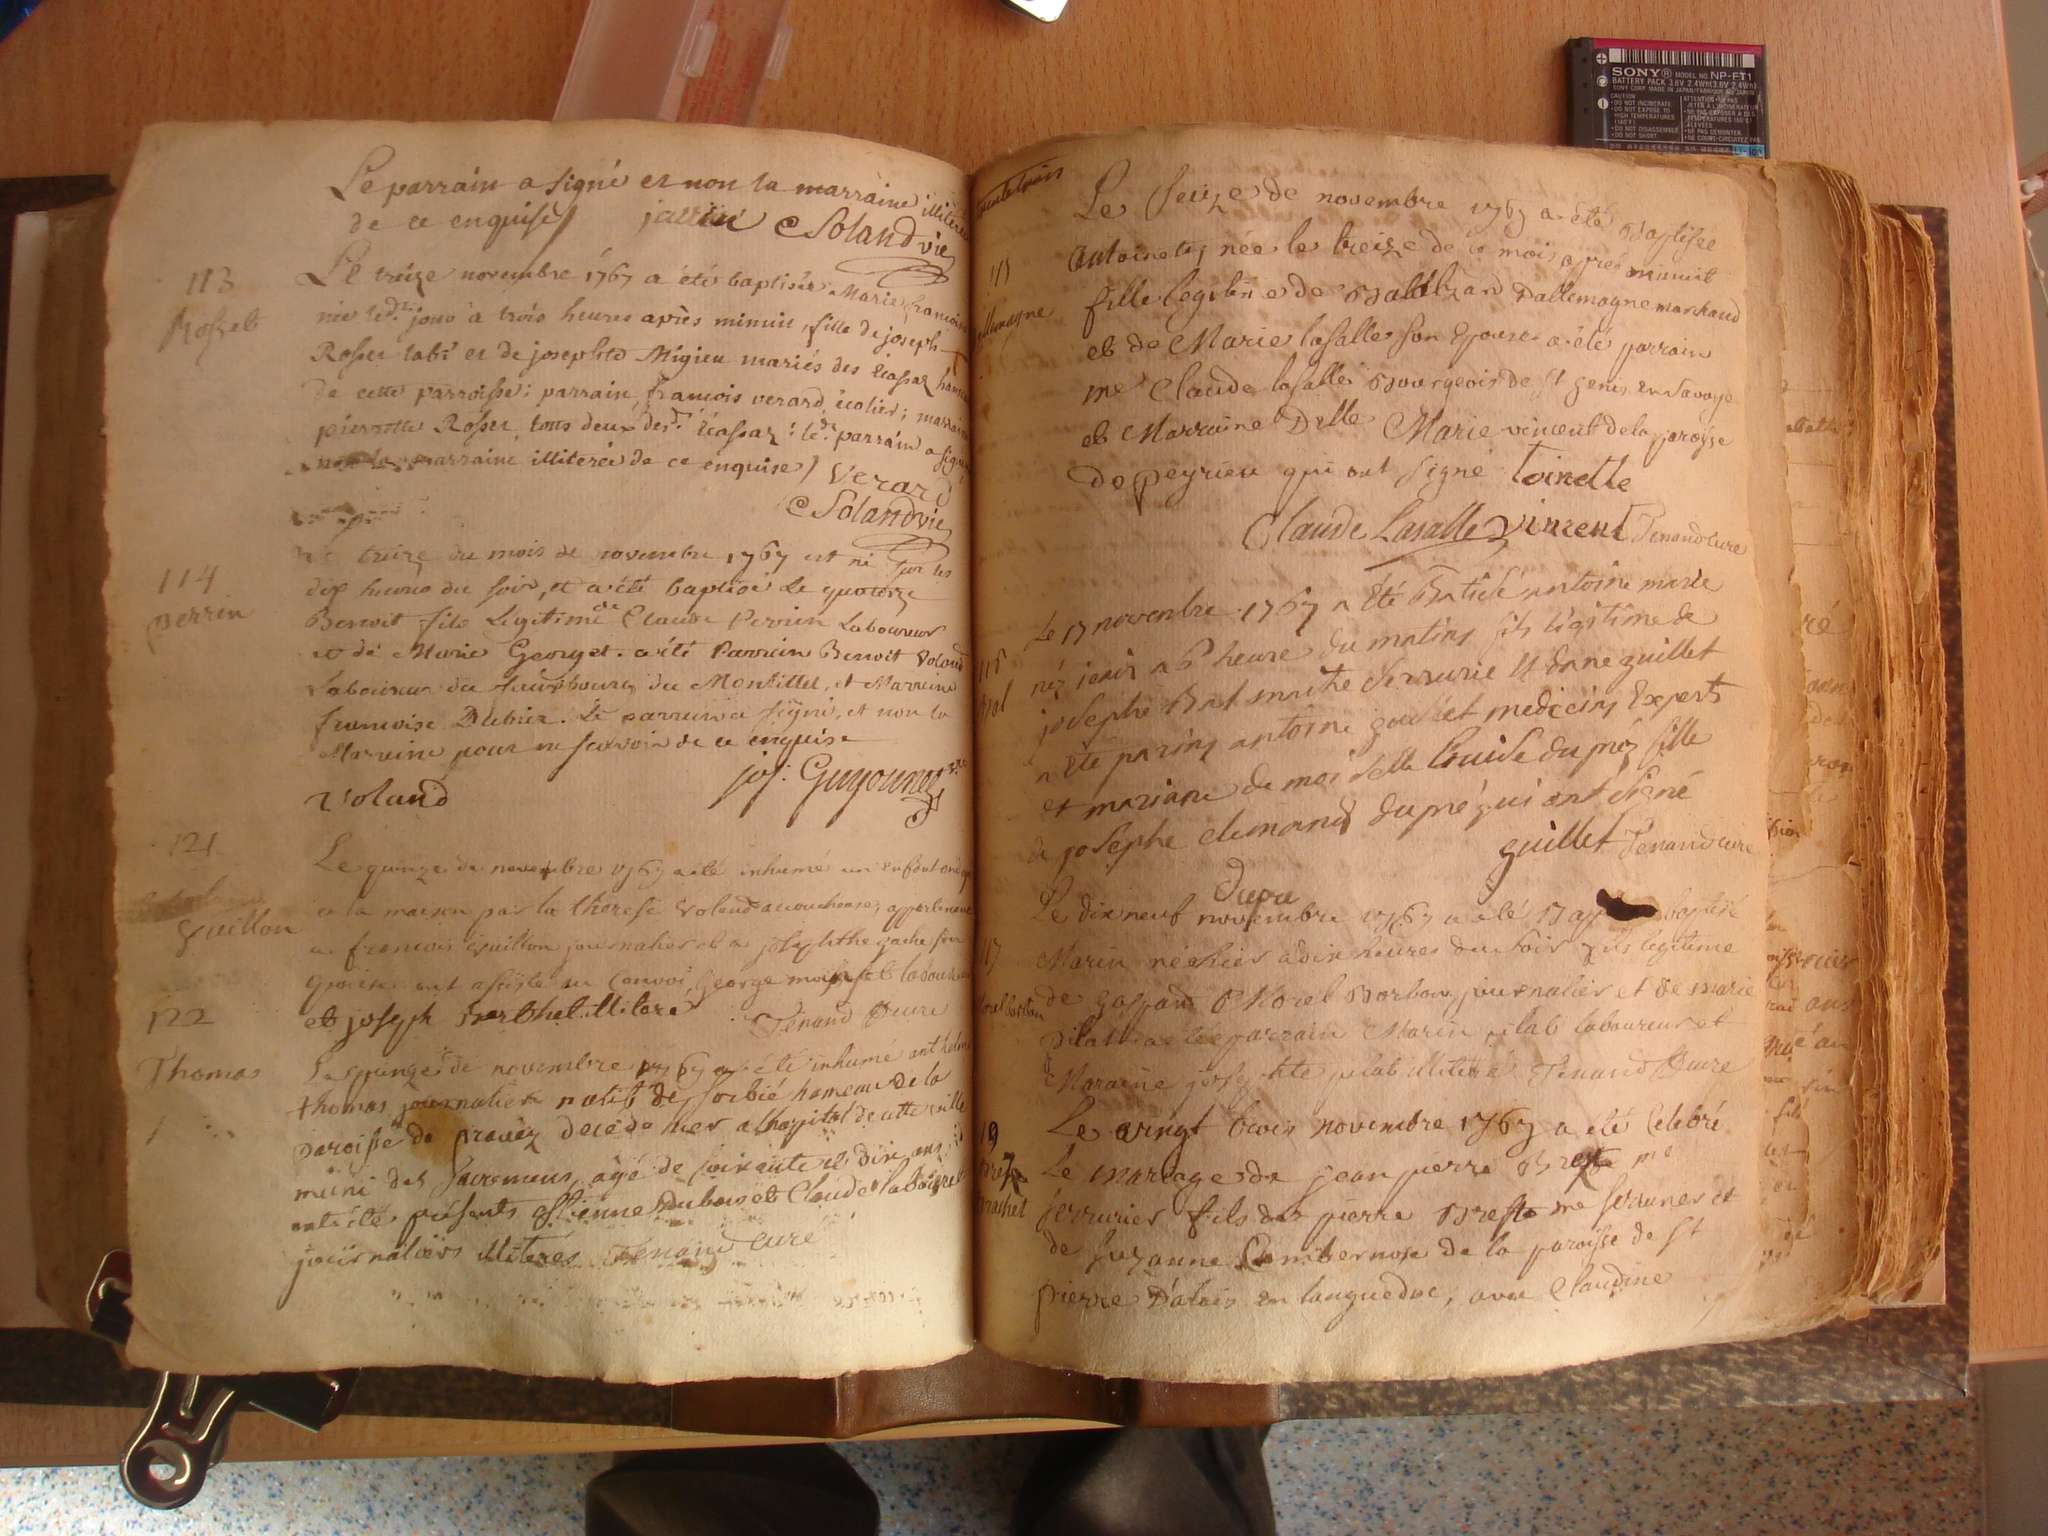 Le parrain a signé et non la marraine illiterée
de ce enquise jarrin Solandvic
113
Rosset
Le treize novembre 1767 a été baptisée Marie francoise
née led.t jour à trois heures après minuit, fille de joseph
Rosset lab.r et de josephte Migieu mariés des Ecassaz hameau
de cette parroisse; parrain francois verard écolier; marraine
pierrette Rosset, tous deux des.d. Ecassaz: le d. parrain a signé
non la marraine illiterée de ce enquise Verard
Solandvic
114
perrin
Le treize du mois de novembre 1767 est né sur les
dix heures du soir, et a été baptisé le quatorze
Benoit fils Legitime de Claude Perrin Laboureur
et de Marie Georget. a été Parrain Benoit Voland
Laboureur du fauxbourg du Montillet, et Marraine
francoise Dubier. Le parrain a signé, et non la
Marraine pour ne savoir de ce enquise
Voland jos: Guyounet
121
Guillon
Le quinze de novembre 1767 a été inhumé un enfant
a la maison par la therese Voland acoucheuse, appartenant
a francois Guillon journalier et a josephthe
ont assisté au convoi, George laboureur
et joseph Berthet illiteré Tenand Cure
122
Thomas
Le quinze de novembre 1767 a été inhumé anthelme
thomas journalier natif de sorbié hameau de la
paroisse de decede hier a lhopital de cette ville
muni des sacremens, agé de soixante et dix ans
ont été présents Estienne Dubois et Claude
journaliers illiterés Tenand Cure
115
allemagne
Le seize de novembre 1767 a été Baptisée
antoinette, née le treize de ce mois après minuit
fille legitime de Balthzard Dallemagne marchand
et de Marie lasalle son Epouse a été parrain
me Claude lasalle Bourgeois de st genis en Savoye
et Marraine Delle Marie vincent de la paroisse
de peyrieu qui ont signé toinette
Claude Lasalle vincent Tenand Cure
116
Brat
Le 17 novembre 1767 a Eté Batisé antoine marie
né jeair a 6 heure du matins fils légitime de
josephe Brat maitre serrurie Et dane guillet
a Ete parins antoine guillet medecins Experts
et mariane de moiselle louise dupréz fille
de josephe clemand dupré qui ont signé
guillet Tenand Cure
dupre
117
Le dix neuf novembre 1767 a été baptisé
Marin né hier à dix heures du soir fils legitime
de gaspard Morel Borbon journalier et de marie
pilat a été parrain Marin pilat laboureur et
Maraine josephte pilat illiteré Tenand Cure
19
Brest
Brachet
Le vingt trois novembre 1767 a été Celebré
Le mariage de jean pierre Breste me
serrurier fils de pierre Breste me serrurier et
de suzanne de la paroisse de st
pierre Dalais en languedoc, avec Claudine
SONY® MODEL NO. NP-FT1
BATTERY PACK 3.6V 2.4Wh(3.6V 2.4Wh)
SONY CORP. MADE IN JAPAN
CAUTION
•DO NOT INCINERATE
•DO NOT EXPOSE TO
HIGH TEMPERATURES
(140°F)
•DO NOT DISASSEMBLE
•DO NOT SHORT